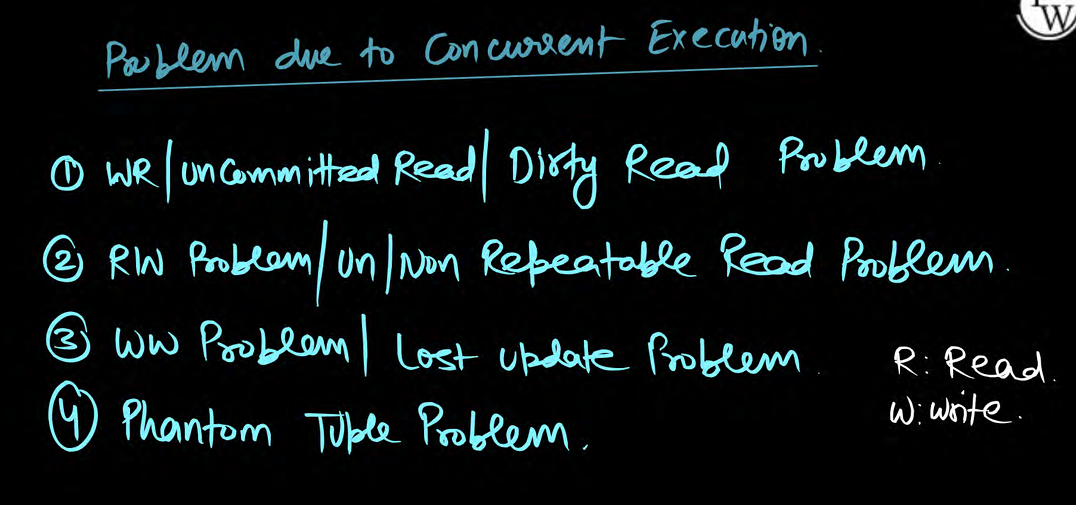 Problem due to Concurrent Execution.
① WR/Uncommitted Read/Dirty Read Problem.
② RW Problem/Un/Non Repeatable Read Problem.
③ WW Problem/Lost Update Problem.
④ Phantom Tuple Problem.
R: Read.
W: write.
W